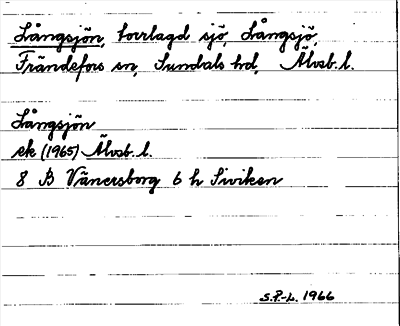 Långsjön, torrlagd sjö, Långsjö,
Frändefors sn, Sundals hd, Älvsb. l.
Långsjön
ek (1965) Älvsb. l.
8 B Vänersborg 6 h Siviken
S.P.-L. 1966